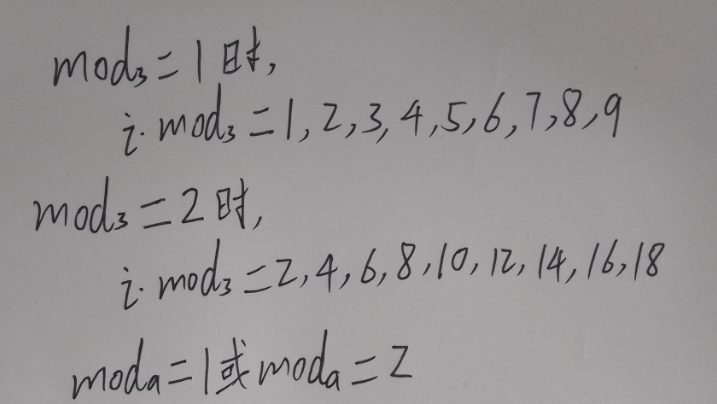 mod₃=1时,
i·mod₃=1,2,3,4,5,6,7,8,9
mod₃=2时,
i·mod₃=2,4,6,8,10,12,14,16,18
modₐ=1或modₐ=2